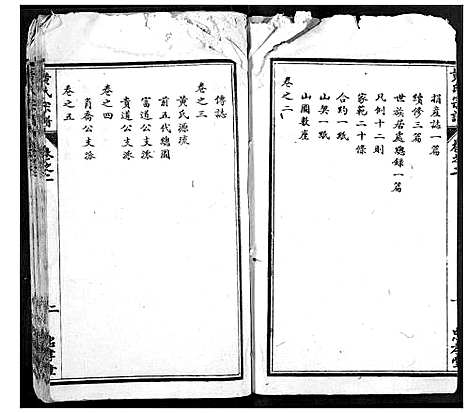 捐産誌一篇
續修三篇
世族居處總錄一篇
凡例十二則
家範二十條
合約一紙
山契一紙
卷之二
山圖數座
傳誌
卷之三
黄氏源㳅
前五代總圖
富道公支派
貴道公支派
卷之四
肖喬公支派
卷之五
黄氏宗譜
卷之一